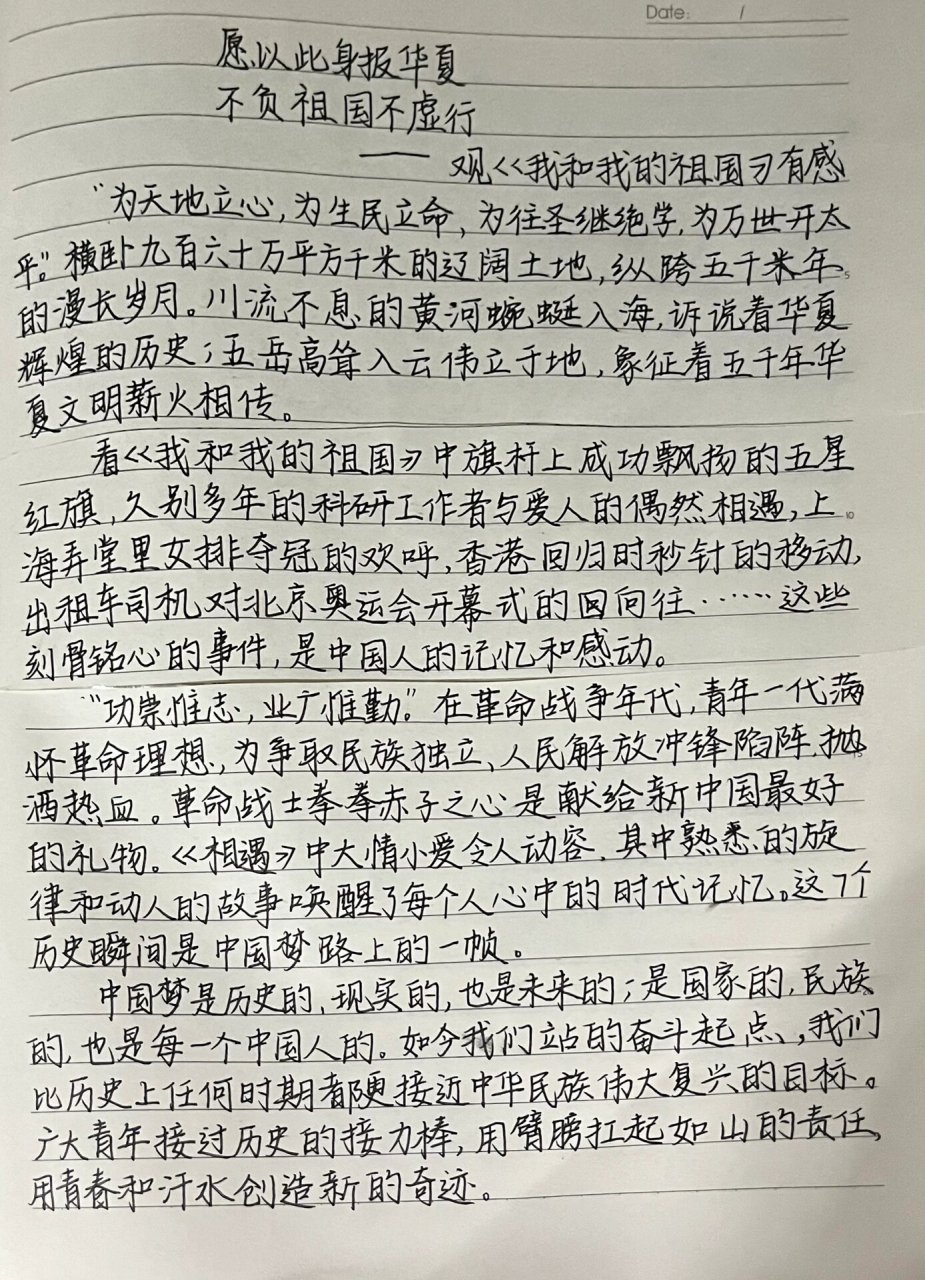 Date: /
愿以此身报华夏
不负祖国不虚行
—— 观《我和我的祖国》有感
“为天地立心,为生民立命,为往圣继绝学,为万世开太
平。”横卧九百六十万平方千米的辽阔土地,纵跨五千米年
的漫长岁月。川流不息的黄河蜿蜒入海,诉说着华夏
辉煌的历史;五岳高耸入云伟立于地,象征着五千年华
夏文明薪火相传。
看《我和我的祖国》中旗杆上成功飘扬的五星
红旗,久别多年的科研工作者与爱人的偶然相遇,上
海弄堂里女排夺冠的欢呼,香港回归时秒针的移动,
出租车司机对北京奥运会开幕式的回向往……这些
刻骨铭心的事件,是中国人的记忆和感动。
“功崇惟志,业广惟勤。”在革命战争年代,青年一代满
怀革命理想,为争取民族独立、人民解放冲锋陷阵、抛
洒热血。革命战士拳拳赤子之心是献给新中国最好
的礼物。《相遇》中大情小爱令人动容,其中熟悉的旋
律和动人的故事唤醒了每个人心中的时代记忆。这7个
历史瞬间是中国梦路上的一帧。
中国梦是历史的,现实的,也是未来的;是国家的,民族
的,也是每一个中国人的。如今我们立站的奋斗起点,我们
比历史上任何时期都更接近中华民族伟大复兴的目标。
广大青年接过历史的接力棒,用臂膀扛起如山的责任,
用青春和汗水创造新的奇迹。
5
10
15